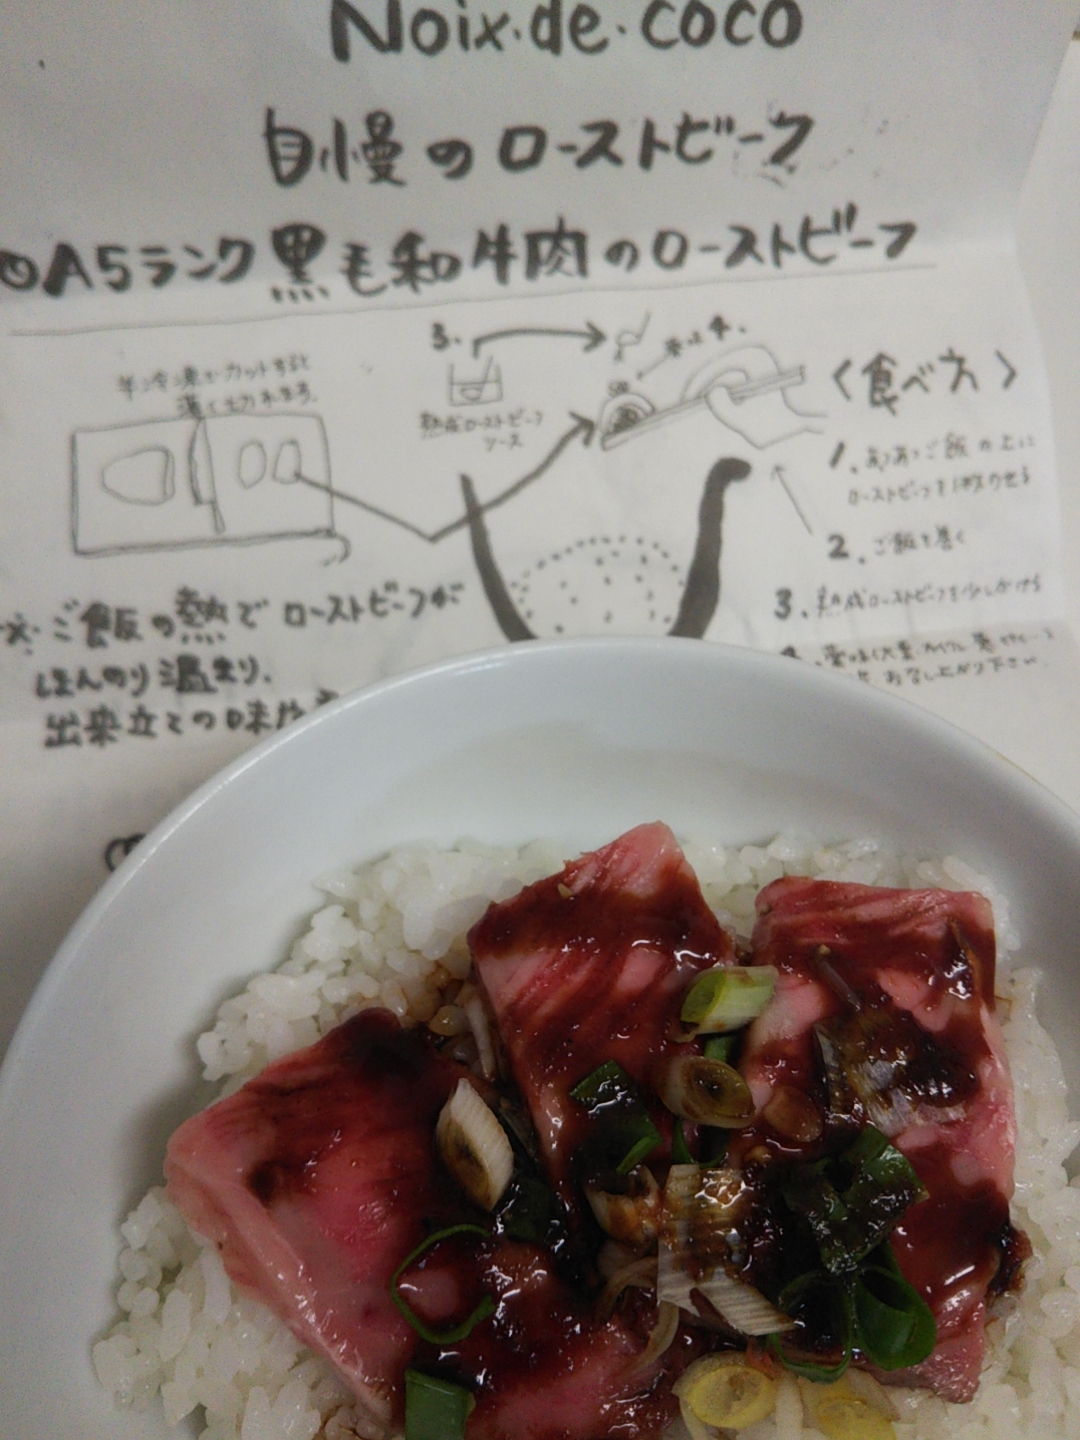 Noix・de・coco
自慢のローストビーフ
A5ランク黒毛和牛肉のローストビーフ
半冷凍でカットすると
薄く切れます。
3.
熟成ローストビーフ
ソース
4.
〈食べ方〉
1.あつあつご飯の上に
ローストビーフを1枚のせる
2.ご飯を巻く
3.熟成ローストビーフを少しかける
お召し上がり下さい。
※ご飯の熱でローストビーフが
ほんのり温まり、
出来立ての味